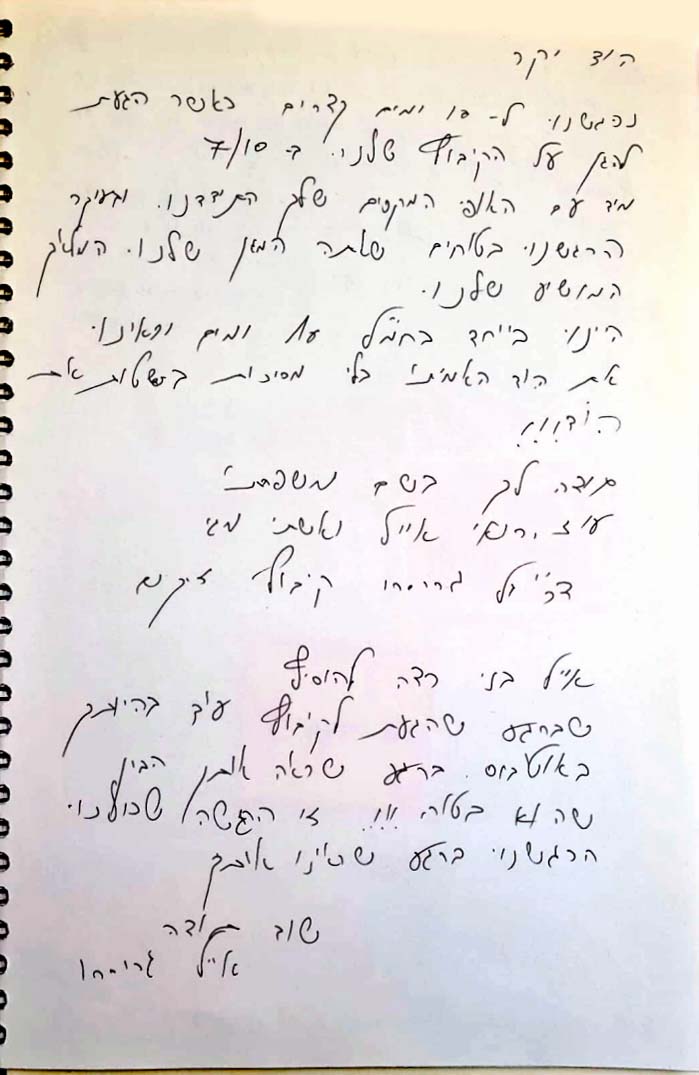 הוד יקר
נפגשנו ל- 10 ימים קצרים כאשר הגעת
להגן על הקיבוץ שלנו ב- 7/10
מיד עם האופי המקסים שלך התידדנו. ובעיקר
הרגשנו בטוחים שאתה המגן שלנו. המלאך
המושיע שלנו.
היינו ביחד בחמ״ל ימים וראינו
את הוד האמיתי בלי מסיכות
הוד!!!
תודה לך בשם משפחתי
עוז, רואי אייל ואשתי מגי
קיבוץ זיקים
אייל בני רצה להוסיף
שברגע שהגעת לקיבוץ עוד בהיותך
באוטובוס. ברגע שראה אותך הבין
שהוא בטוח!!! זו הרגשה שכולנו
הרגשנו ברגע שראינו אותך
שוב תודה
אייל